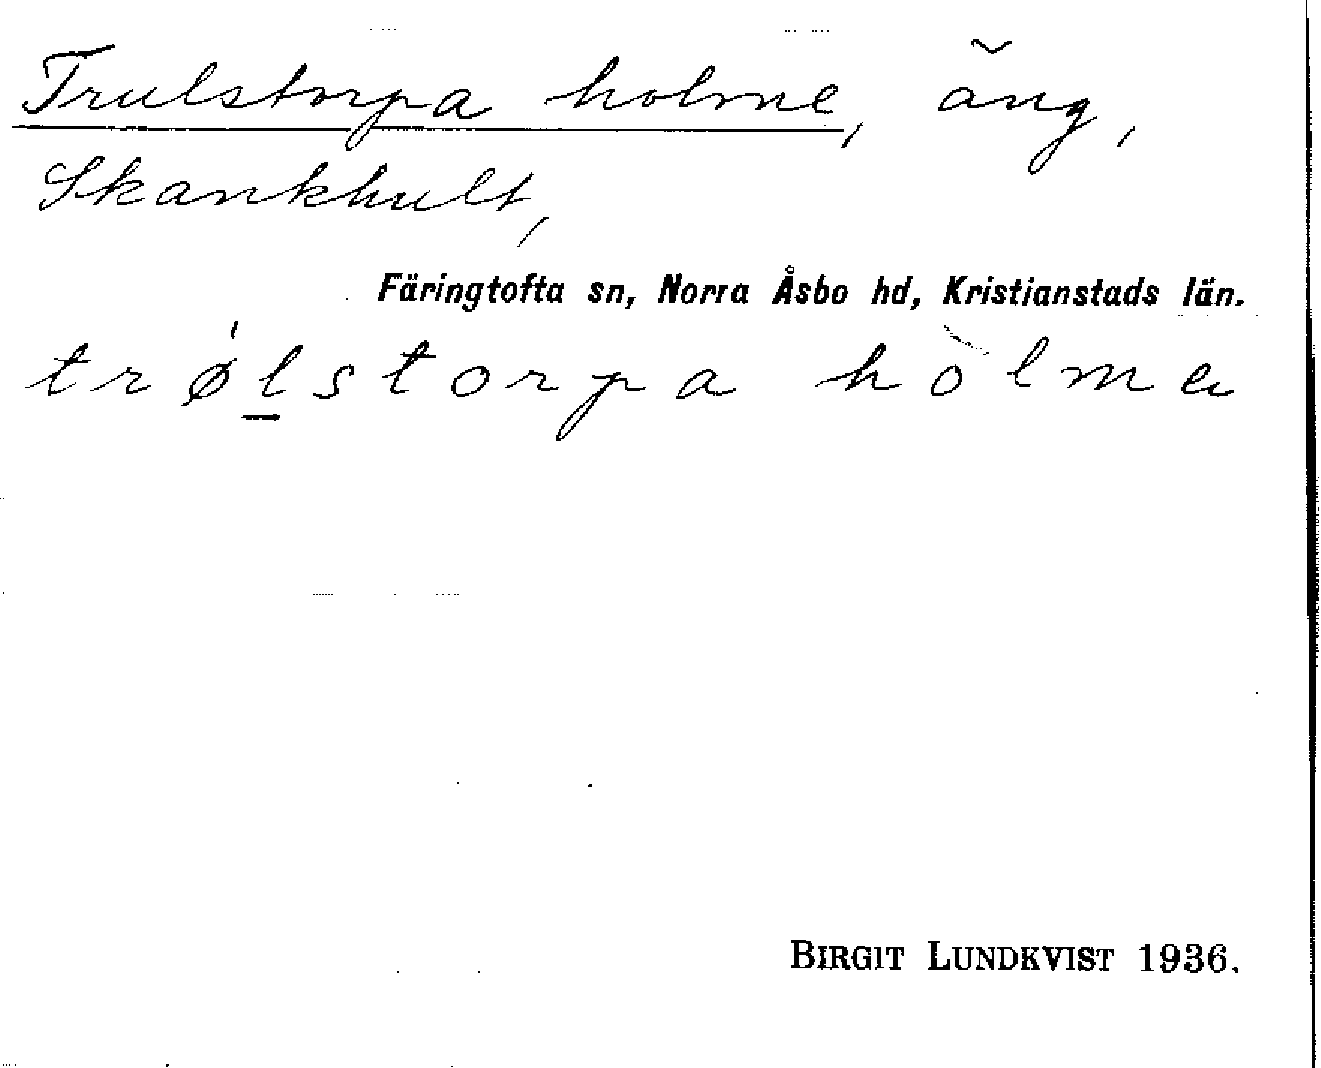 Trulstorpa holme, äng,
Skankhult,
Färingtofta sn, Norra Åsbo hd, Kristianstads län.
trǿl̲storpa hòlmə
BIRGIT LUNDKVIST 1936.